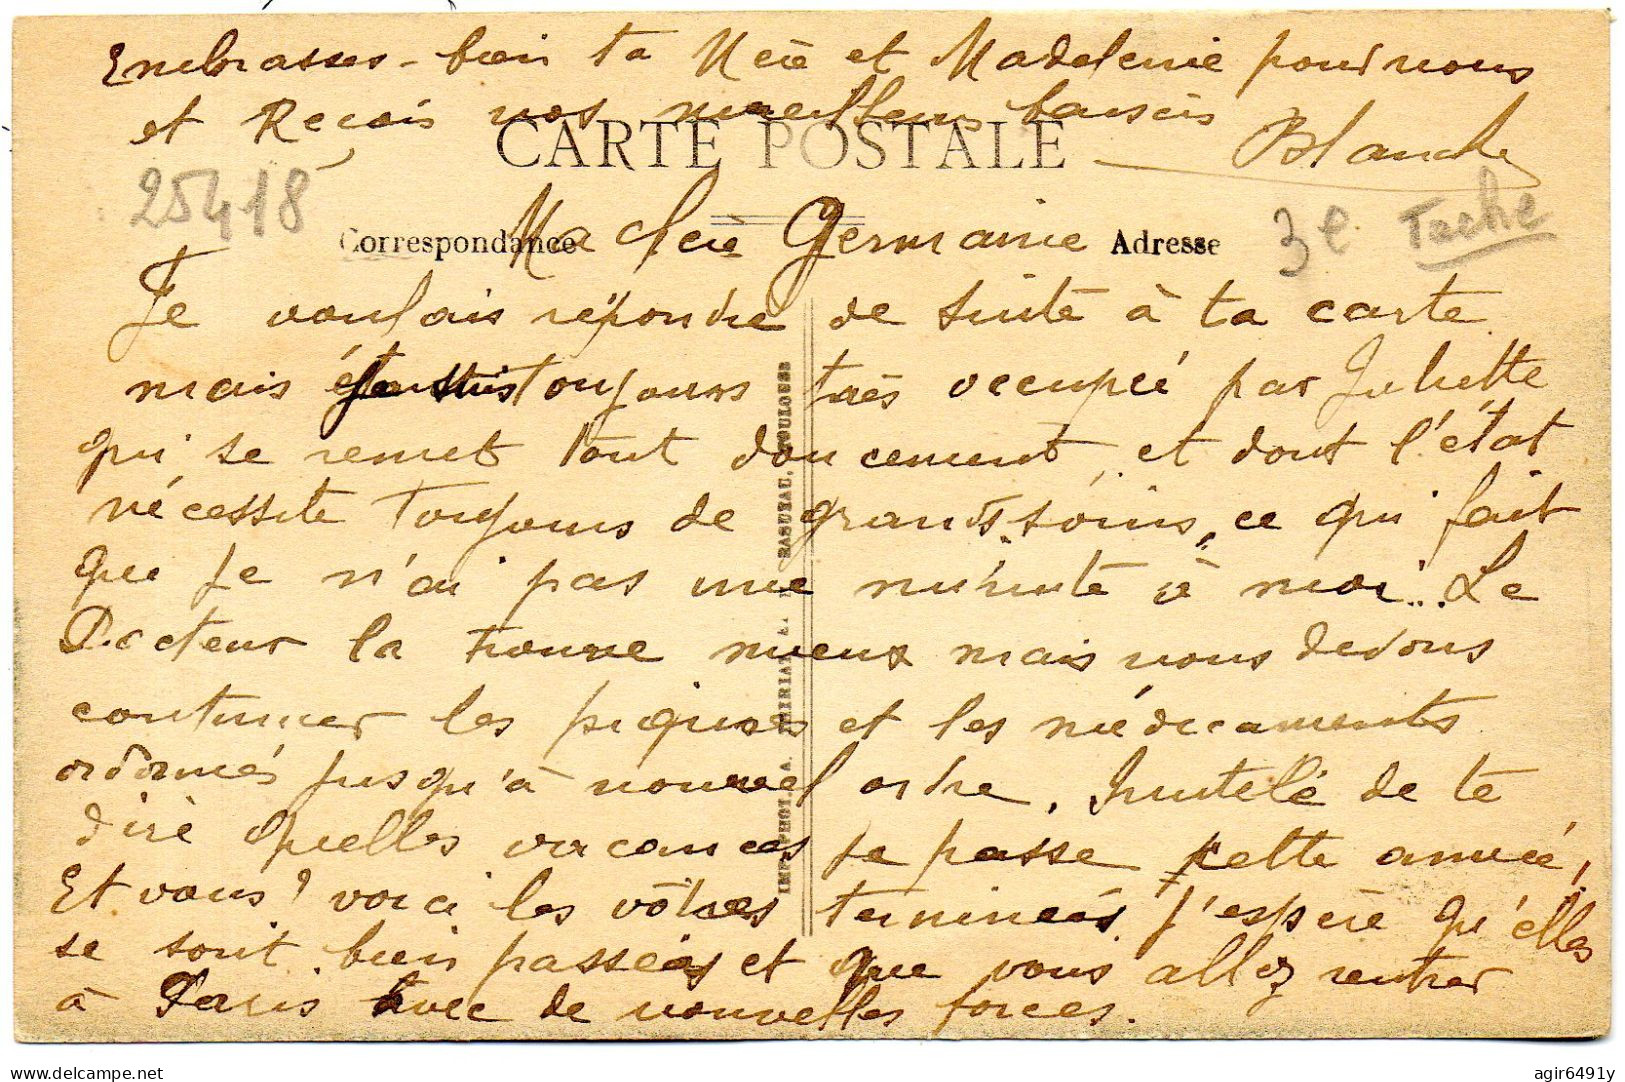 Embrasses - bien ta Mère et Madeleine pour nous
et Reçois nos meilleurs baisers
Blanche
CARTE POSTALE
25418
3€ Tache
Correspondance
Adresse
Ma chère Germaine
Je voulais répondre de suite à ta carte
mais étant toujours très occupée par Juliette
qui se remet tout doucement, et dont l'état
nécessite toujours de grands soins, ce qui fait
que je n'ai pas une minute à moi... Le
Docteur la trouve mieux mais nous devons
continuer les piqures et les médicaments
ordonnés jusqu'à nouvel ordre. Inutile de te
dire quelles vacances je passe cette année,
Et vous? voici les vôtres terminées j'espère qu'elles
se sont bien passées et que vous allez rentrer
à Paris avec de nouvelles forces.
LABOUCHE TOULOUSE